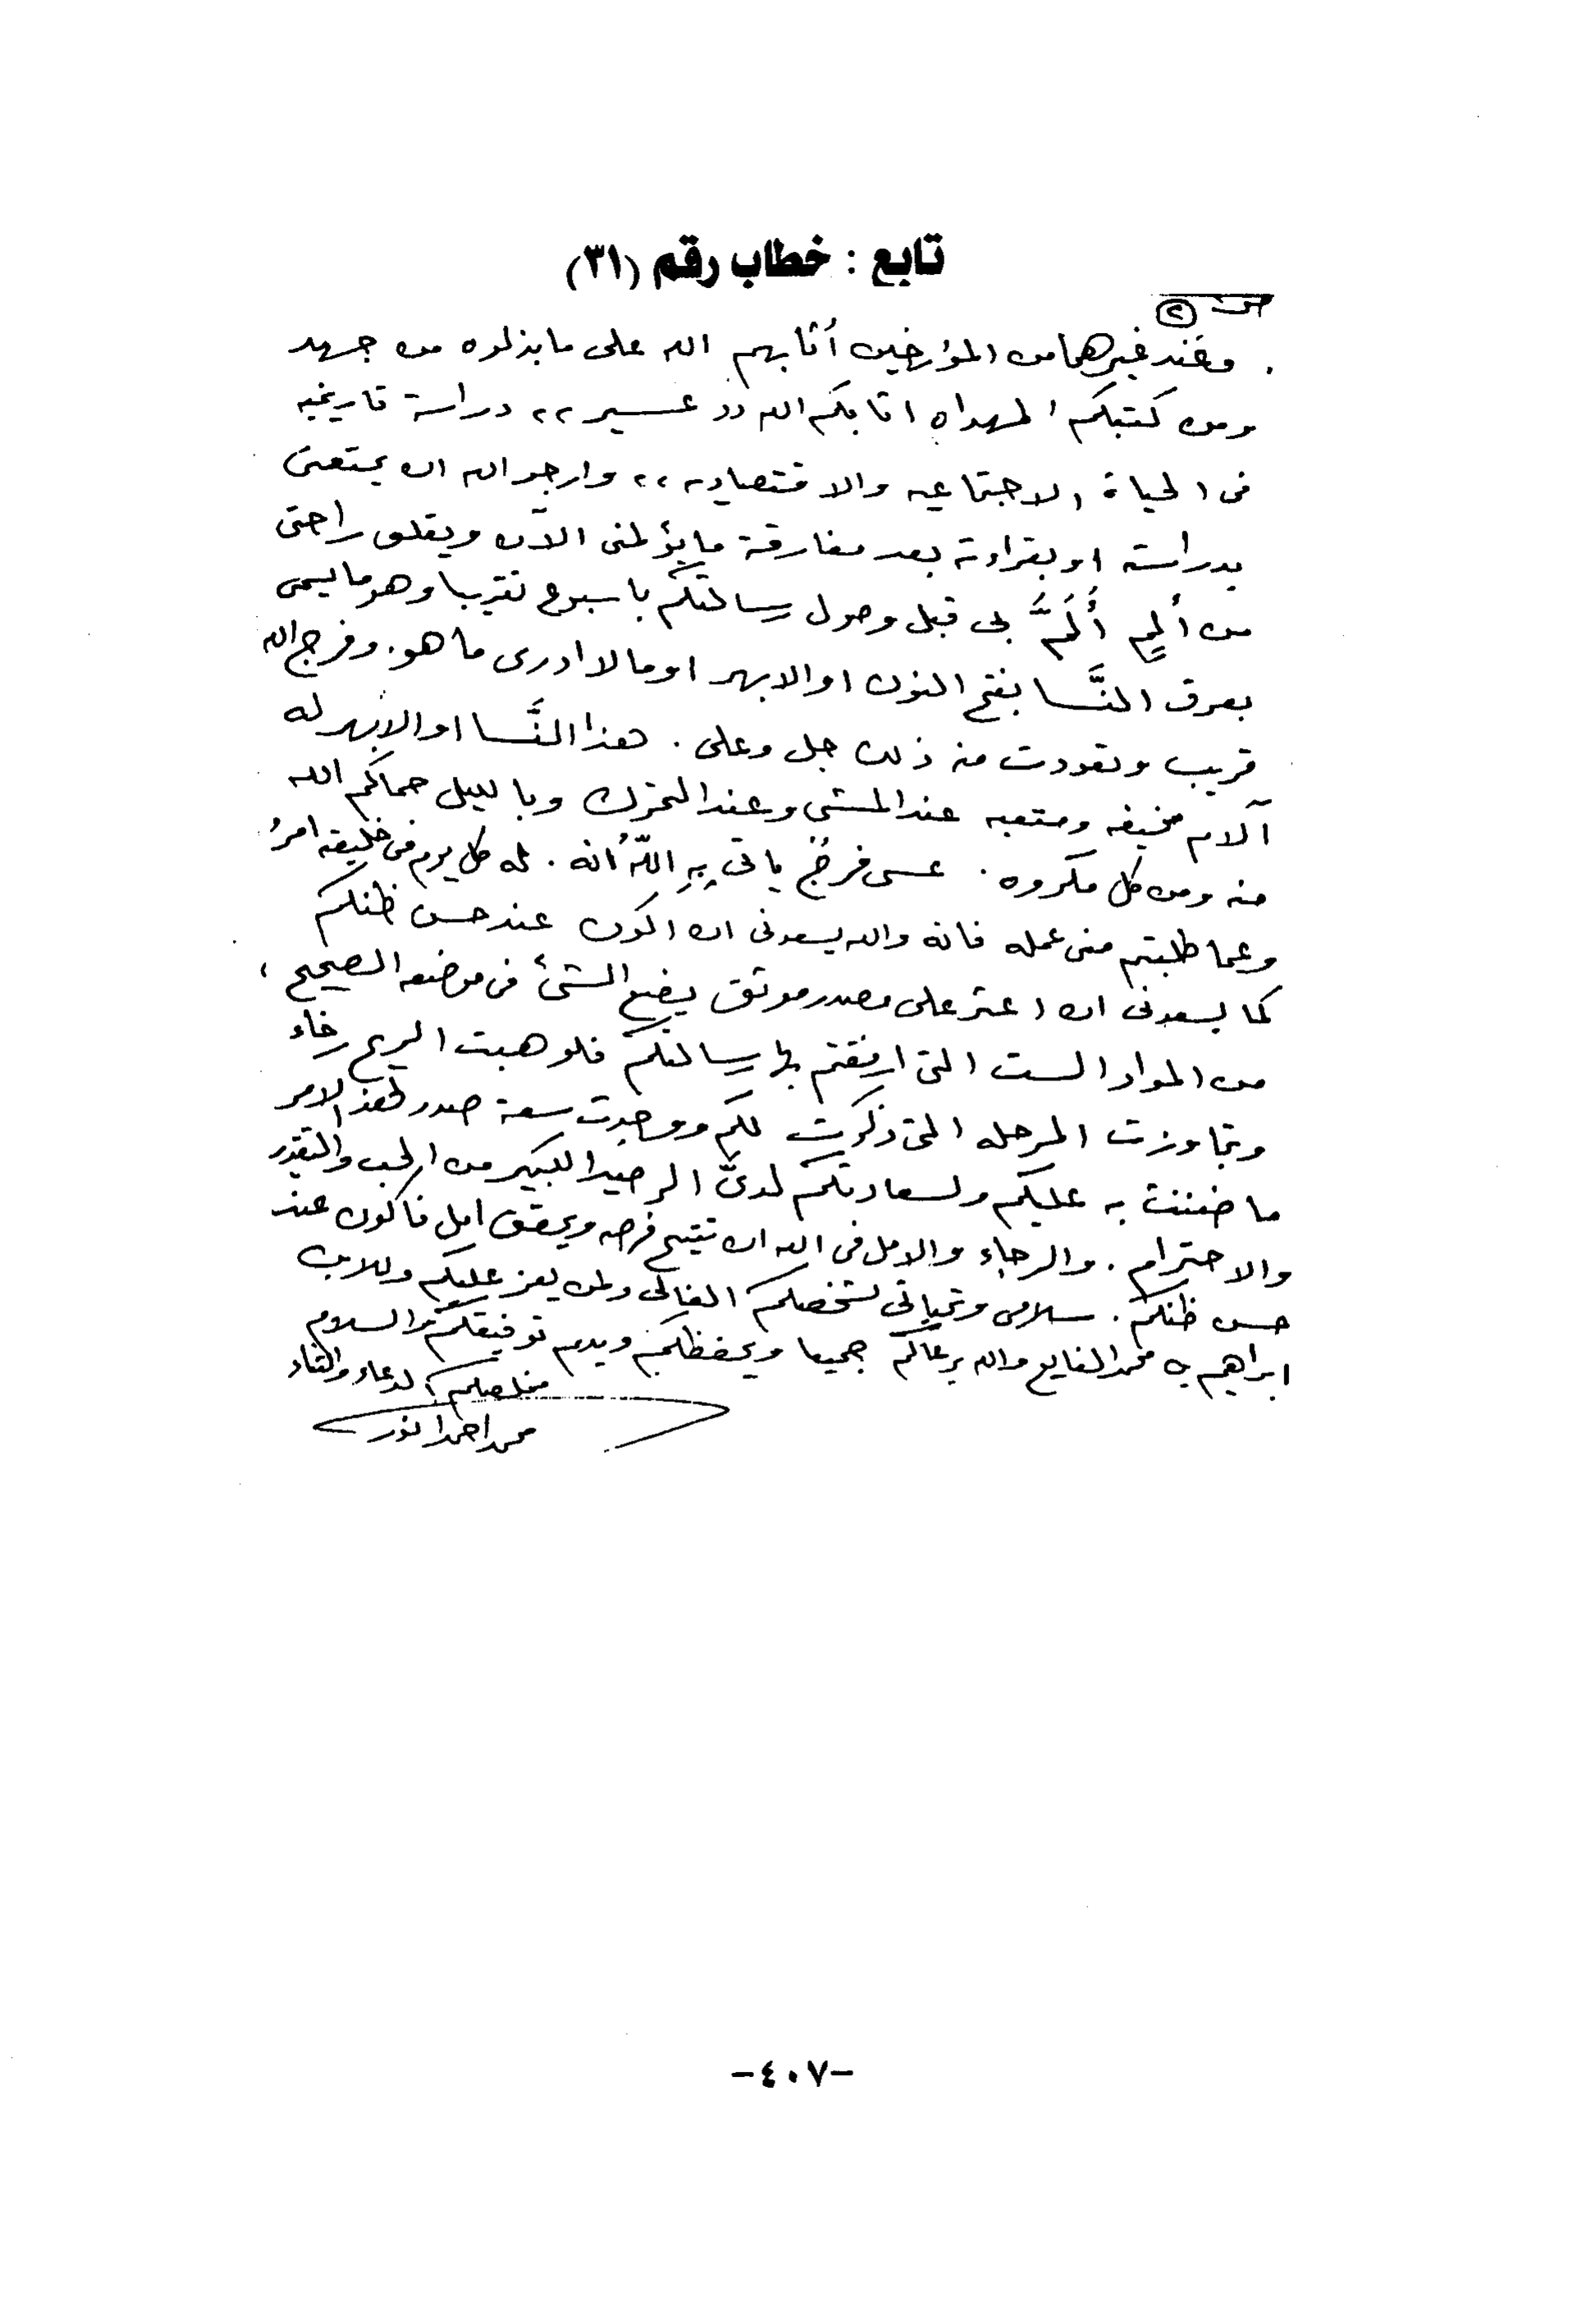 تابع : خطاب رقم (٣١)
ص ٢
. وعند غيرهما من المؤرخين أثابهم الله على ما بذلوه من جهد
ومن كتبكم المهداه اثابكم الله ,, عسير ,, دراسة تاريخيه
فى الحياة الاجتماعيه والاقتصاديه ,, وارجو الله ان يمتعنى
بدراسته او بقراءته بعد مفارقة ما يؤلمنى الآن ويقلق راحتى
من أليمٍ أَلَمَّ بى قبل وصول رسالتكم باسبوع تقريبا وهو مايسمى
بعرق النَّسا بفتح النون او الابهر او ما لا ادرى ما هو. وفرج الله
قريب وتعودت منه ذلك جل وعلى . هذا النَّسا او الابهر له
آلام مخيفه ومتعبه عند المشى وعند التحرك وبالليل حماكم الله
منه ومن كل مكروه . عسى فرجٌ ياتى بِهِ اللّهُ انه . له كل يوم فى خليقته امرُ
وعما طلبتم منى عمله فانه والله يسعدنى ان اكون عند حسن ظنكم
كما يسعدنى ان اعثر على مصدر موثق يضع الشئ فى موضعه الصحيح ،
من المواد الست التى ارفقتم بها رسالتكم فلو هبت الريح رخاء
وتجاوزت المرحله التى ذكرت لكم ووجدت سعة صدر لهذ الامر
ما ضننت به عليكم ولسعادتكم لدىَّ الرصيد الكبير من الحب والتقدير
والاحترام . والرجاء والامل فى الله ان تتيح فرصه ويحقق امل فاكون عند
حسن ظنكم . سلامى وتحياتى لشخصكم الغالى ولمن يعز عليكم وللابن
ابراهيم بن محمد الفايع والله يرعاكم جميعا ويحفظكم ويديم توفيقكم والسلام
مخلصكم لدعاء والثناء
محمد احمد انور
-٤٠٧-